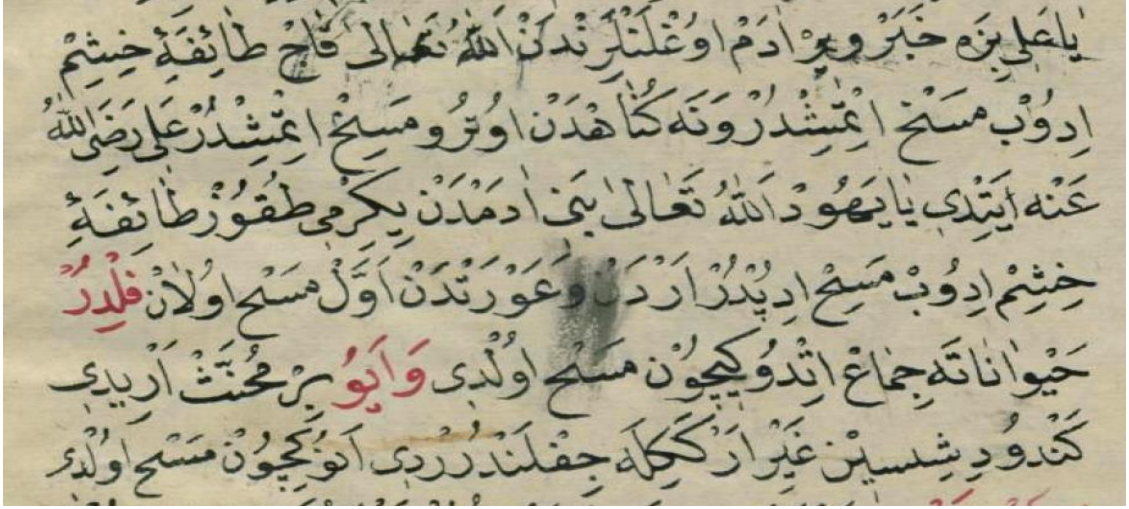 يَا عَلِى بِزَه خَبَرْ وِيرْ اٰدَمْ اوُغْلَنْلَرِنْدَنْ اَللهُ تَعَالٰى قَاجْ طَائِفَهٔ خِشِمْ
اِدُوْبْ مَسْخْ اِتْمِشْدُرْ وَنَه كُنَاهْدَنْ اوُتُرُو مَسِخْ اِتْمِشْدُرْ عَلِى رَضِىَ اللهُ
عَنْه اَيتْدِى يَا يَهُودْ اَللهُ تَعَالٰى بَنِى اٰدَمَدَنْ يِكِرْمِى طُقُوزْ طَائِفَهٔ
خِشِمْ اِدُوبْ مَسِخْ اِدِبْدُرْ اَرْدَنْ وَعَوْرَتْدَنْ اَوَّلْ مَسْخ اوُلَانْ فِلْدِرُرْ
حَيْوَانَاتَه جِمَاعْ اِتْدُوكِيچُوْن مَسْخ اوُلْدِى وَاَيُو بِرْ مُخَنَّثْ اَرِيدِى
كَنْدُو دِشِسِيْن غَيْرِ اَرْ كَكِلَه جِفْلَنْدُرُرْدِى اَنُوكِچُوْن مَسْخ اوُلْدِى